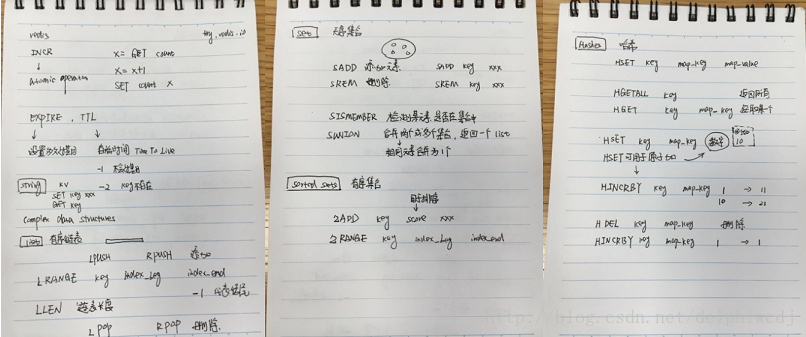 redis try.redis.io
INCR x = GET count
↓ x = x+1
Atomic operator SET count x
EXPIRE , TTL
设置多久过期 存活时间 Time To Live
-1 不会过期
string KV -2 key不存在
SET key xxx
GET key
complex data structures
list 有序链表
LPUSH RPUSH 添加
LRANGE key index_beg index_end
-1
LLEN 链表长度
LPOP RPOP 删除
set 无序集合
SADD 添加元素 SADD key xxx
SREM 删除 SREM key xxx
SISMEMBER 检测某元素是否在集合中
SUNION 合并两个或多个集合,返回一个 list
相同元素合并为1个
Sorted Sets 有序集合
ZADD key score xxx
ZRANGE key index_beg index_end
Hashes 哈希
HSET key map-key map-value
HGETALL key 返回所有
HGET key map-key 获取某个
HSET key map-key 数字 10
HSET可用于原子加
↓
HINCRBY key map-key 1 → 11
10 → 21
HDEL key map-key 删除
HINCRBY key map-key 1 → 1
http://blog.csdn.net/delphiwcdj